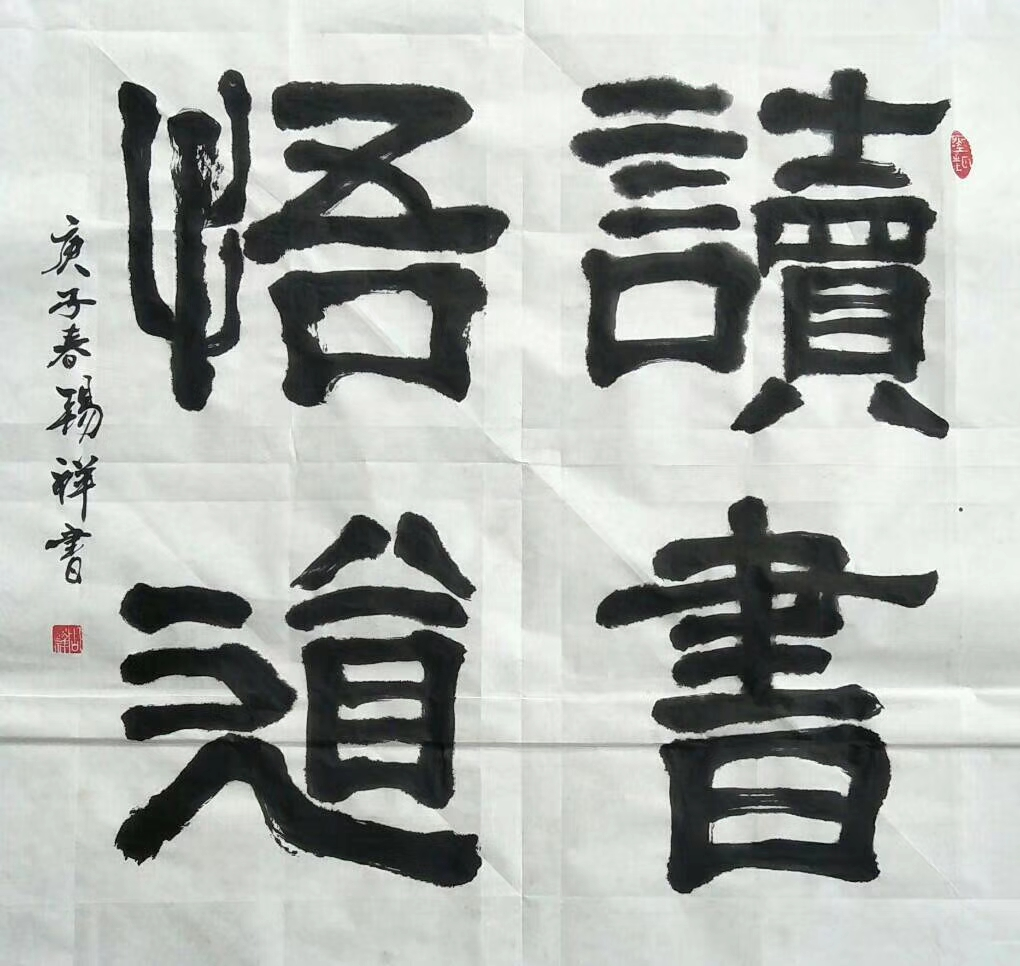 讀書
悟道
庚子春錫祥書